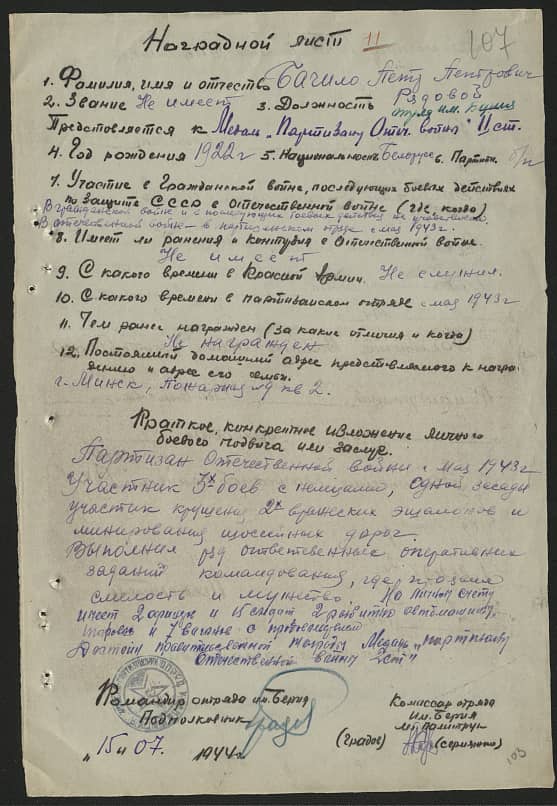 Наградной лист 11
107
1. Фамилия, имя и отчество Бачило Петр Петрович
2. Звание Не имеет 3. Должность Рядовой
отряд им. Берия
Представляется к Медали "Партизану Отеч. войны" II ст.
4. Год рождения 1922 г 5. Национальность Белорус 6. Партийн. б/п
7. Участие в Гражданской войне, последующих боевых действиях
по защите СССР в Отечественной войне (где, когда)
В гражданской войне и в последующих боевых действиях не участвовал
В отечественной войне в партизанском отряде с мая 1943 г.
8. Имеет ли ранения и контузия в Отечественной войне.
Не имеет
9. С какого времени в Красной Армии. Не служил.
10. С какого времени в партизанском отряде с мая 1943 г
11. Чем ранее награжден (за какие отличия и когда)
Не награжден
12. Постоянный домашний адрес представляемого к награ-
ждению и адрес его семьи.
г. Минск, Пожарная 19 кв 2.
Краткое, конкретное изложение личного
боевого подвига или заслуг.
Партизан Отечественной войны с мая 1943 г
Участник 3х боев с немцами, одной засады
участник крушения 2х вражеских эшелонов и
минирования шоссейных дорог.
Выполнял ряд ответственных оперативных
заданий командования, где проявил
смелость и мужество. На личном счету
имеет 2 и 15 солдат 2 автомашины,
и 7 вагонов с
Достоин правительственной награды Медаль "партизану
Отечественной войны 2 ст"
Командир отряда им. Берия
Подполковник
(Градов)
Комиссар отряда
им. Берия
"15" 07. 1944 г.
103